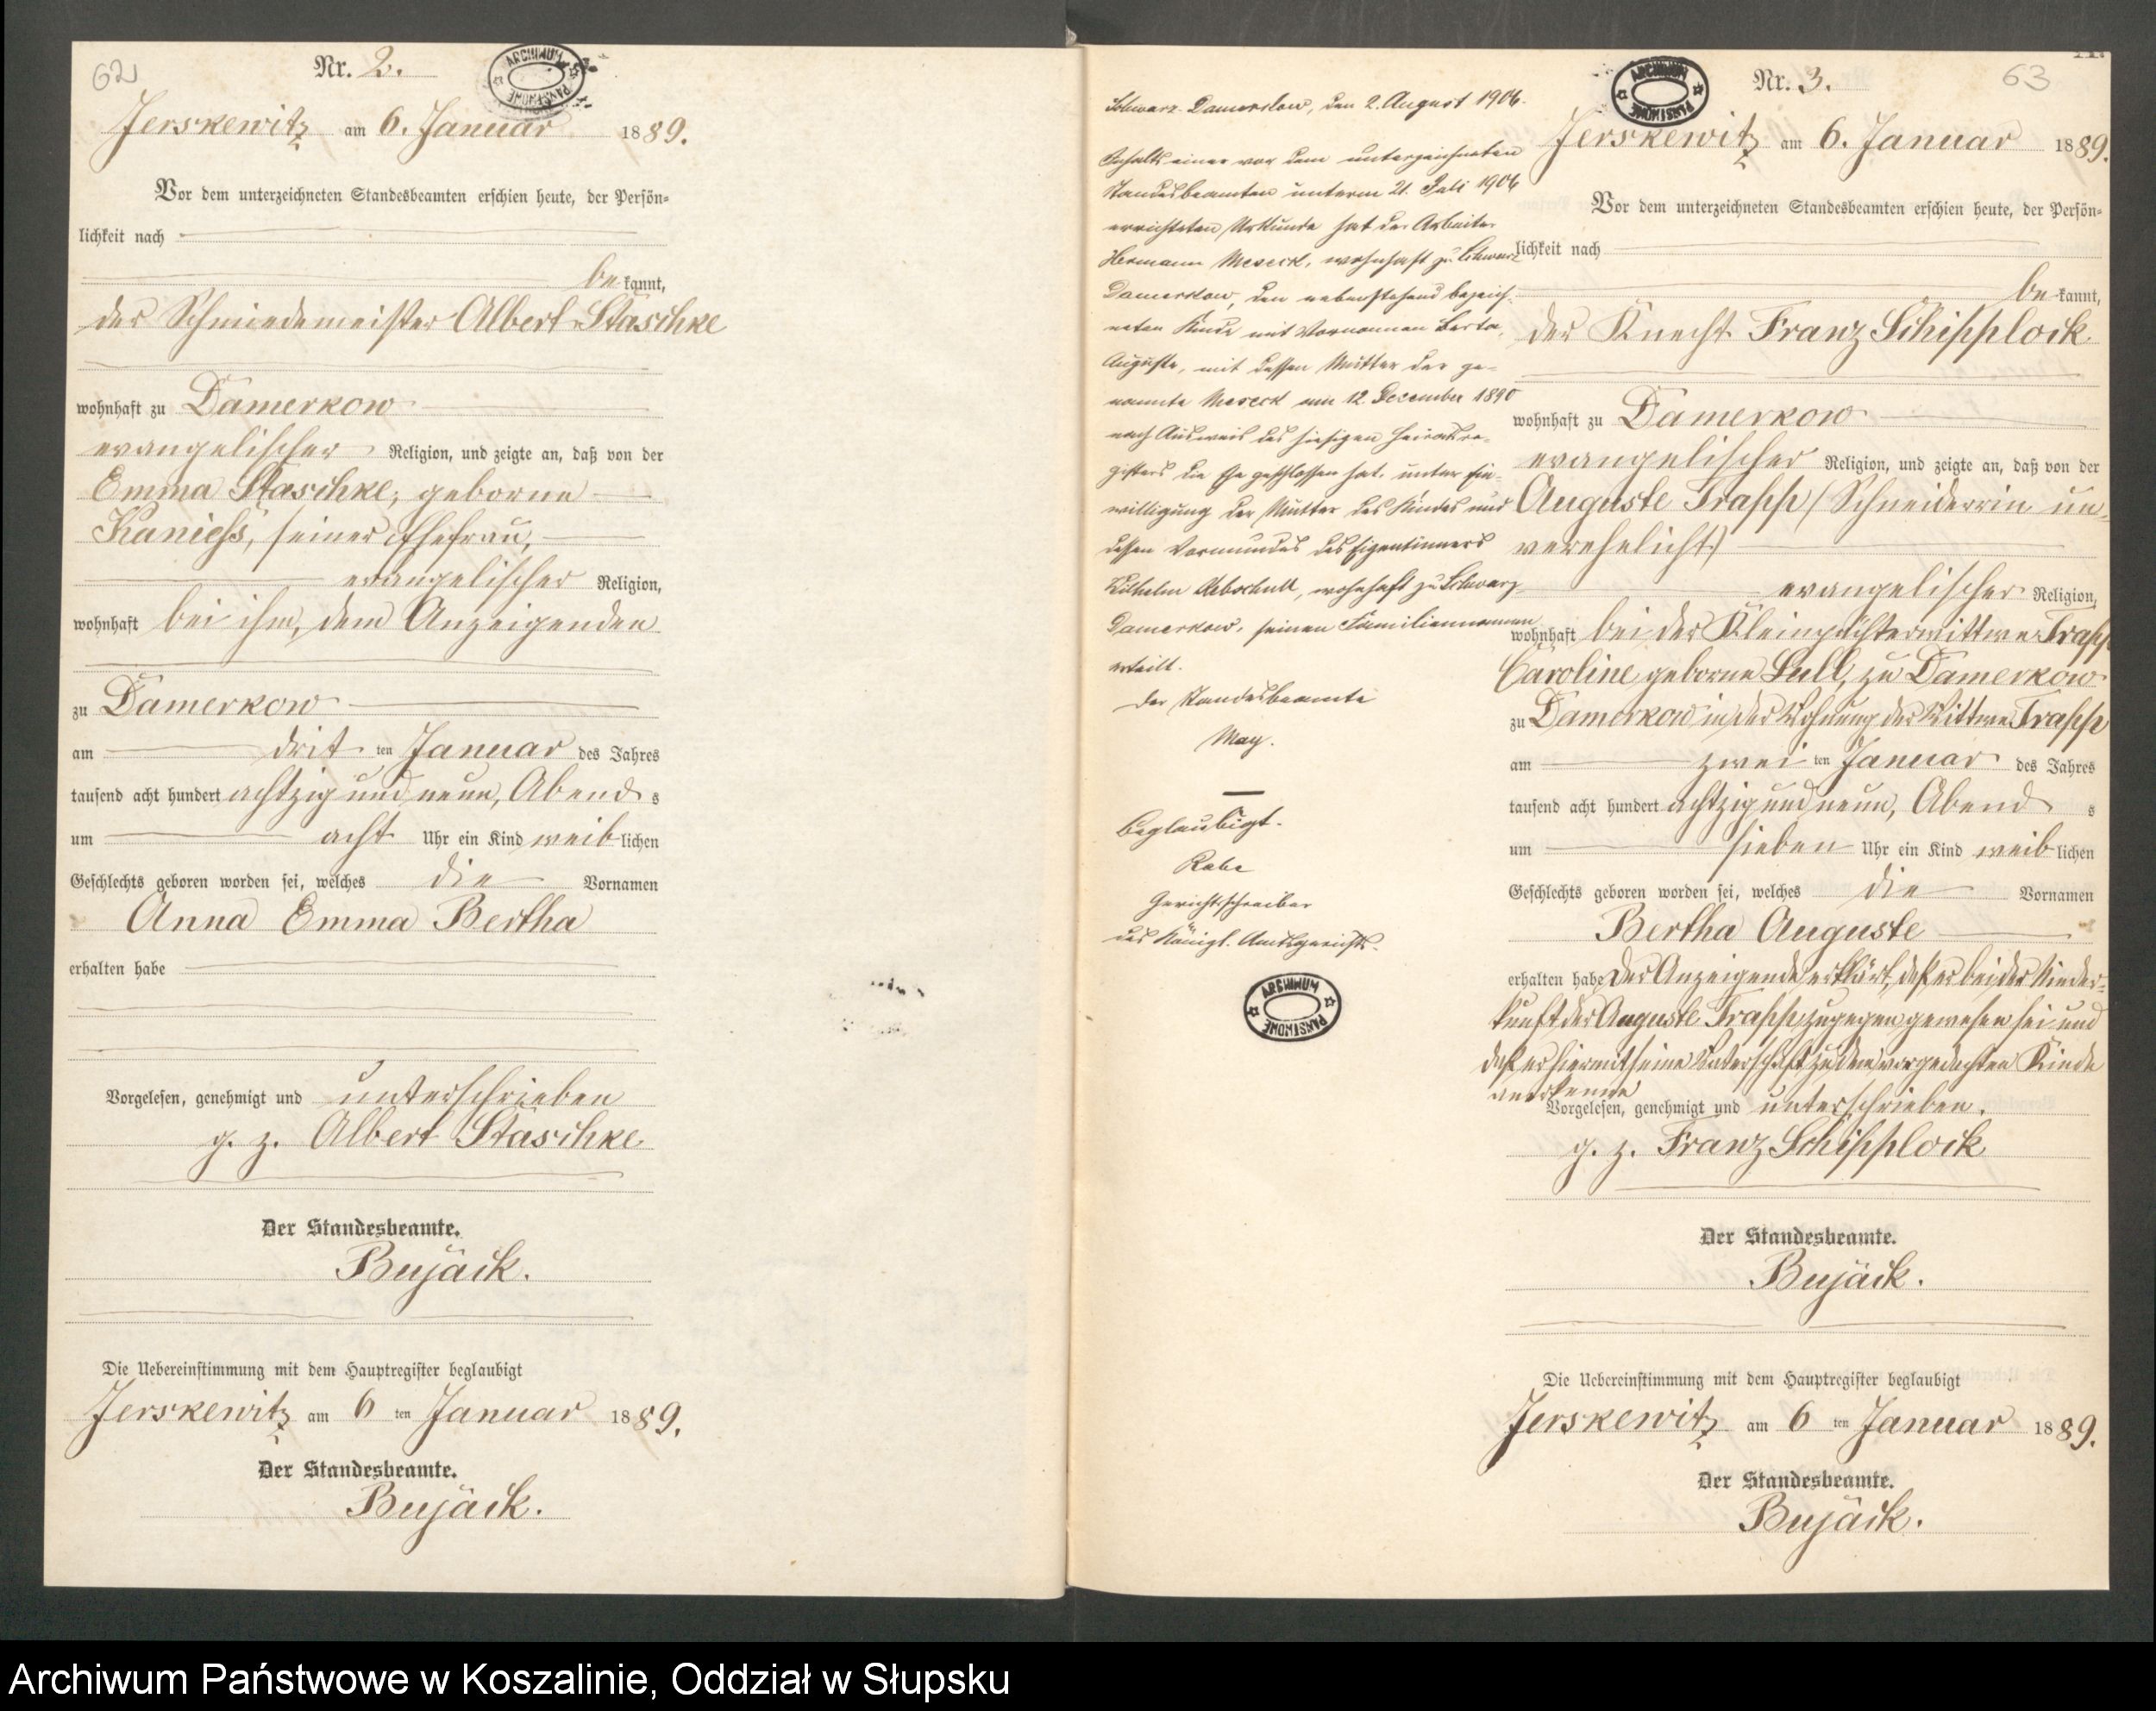 62
Nr. 2.
ARCHIWUM PAŃSTWOWE
Jerskewitz am 6. Januar 1889.
Vor dem unterzeichneten Standesbeamten erschien heute, der Persön=
lichkeit nach
be kannt,
der Schmiedemeister Albert Staschke
wohnhaft zu Damerkow
evangelischer Religion, und zeigte an, daß von der
Emma Staschke, geborne
Kaniess, seiner Ehefrau,
evangelischer Religion,
wohnhaft bei ihm, dem Anzeigenden
zu Damerkow
am drit ten Januar des Jahres
tausend acht hundert achtzig und neun, Abend s
um acht Uhr ein Kind weib lichen
Geschlechts geboren worden sei, welches die Vornamen
Anna Emma Bertha
erhalten habe
Vorgelesen, genehmigt und unterschrieben
g. z. Albert Staschke
Der Standesbeamte.
Bujack.
Die Uebereinstimmung mit dem Hauptregister beglaubigt
Jerskewitz am 6 ten Januar 1889.
Der Standesbeamte.
Bujack.
Schwarz-Damerkow, den 2. August 1904.
Inhalts einer vor dem unterzeichneten
Standesbeamten unterm 21. Juli 1904
errichteten Urkunde hat der Arbeiter
Hermann Meseck, wohnhaft zu Schwarz
Damerkow, den nebenstehend bezeich-
neten Kinde mit Vornamen Berta,
Auguste, mit dessen Mutter der ge-
nannte Meseck am 12. December 1890
nach Ausweis des hiesigen Heiratsre-
gisters die Ehe geschlossen hat, unter Ein-
willigung der Mutter des Kindes und
dessen Vormundes des Eigentümers
Wilhelm, wohnhaft zu Schwarz
Damerkow, seinen Familiennamen
erteilt.
Der Standesbeamte
May.
Beglaubigt.
Rabe
Gerichtsschreiber
des Königl. Amtsgerichts.
ARCHIWUM PAŃSTWOWE
ARCHIWUM PAŃSTWOWE
Nr. 3.
63
Jerskewitz am 6. Januar 1889.
Vor dem unterzeichneten Standesbeamten erschien heute, der Persön=
lichkeit nach
be kannt,
der Knecht Franz Schipplock
wohnhaft zu Damerkow
evangelischer Religion, und zeigte an, daß von der
Auguste Trapp (Schneiderrin un-
verehelicht)
evangelischer Religion,
wohnhaft bei der Kleinpächterwittwe Trapp
Caroline geborne Lull, zu Damerkow
zu Damerkow in der Wohnung der Wittwe Trapp
am zwei ten Januar des Jahres
tausend acht hundert achtzig und neun, Abend s
um sieben Uhr ein Kind weib lichen
Geschlechts geboren worden sei, welches die Vornamen
Bertha Auguste
erhalten habe Der Anzeigende erklärt, daß er bei der Nieder-
kunft der Auguste Trapp zugegen gewesen sei und
daß er hiermit seine Vaterschaft zu dem vorgedachten Kinde
anerkenne
Vorgelesen, genehmigt und unterschrieben.
g. z. Franz Schipplock
Der Standesbeamte.
Bujack.
Die Uebereinstimmung mit dem Hauptregister beglaubigt
Jerskewitz am 6 ten Januar 1889.
Der Standesbeamte.
Bujack.
Archiwum Państwowe w Koszalinie, Oddział w Słupsku